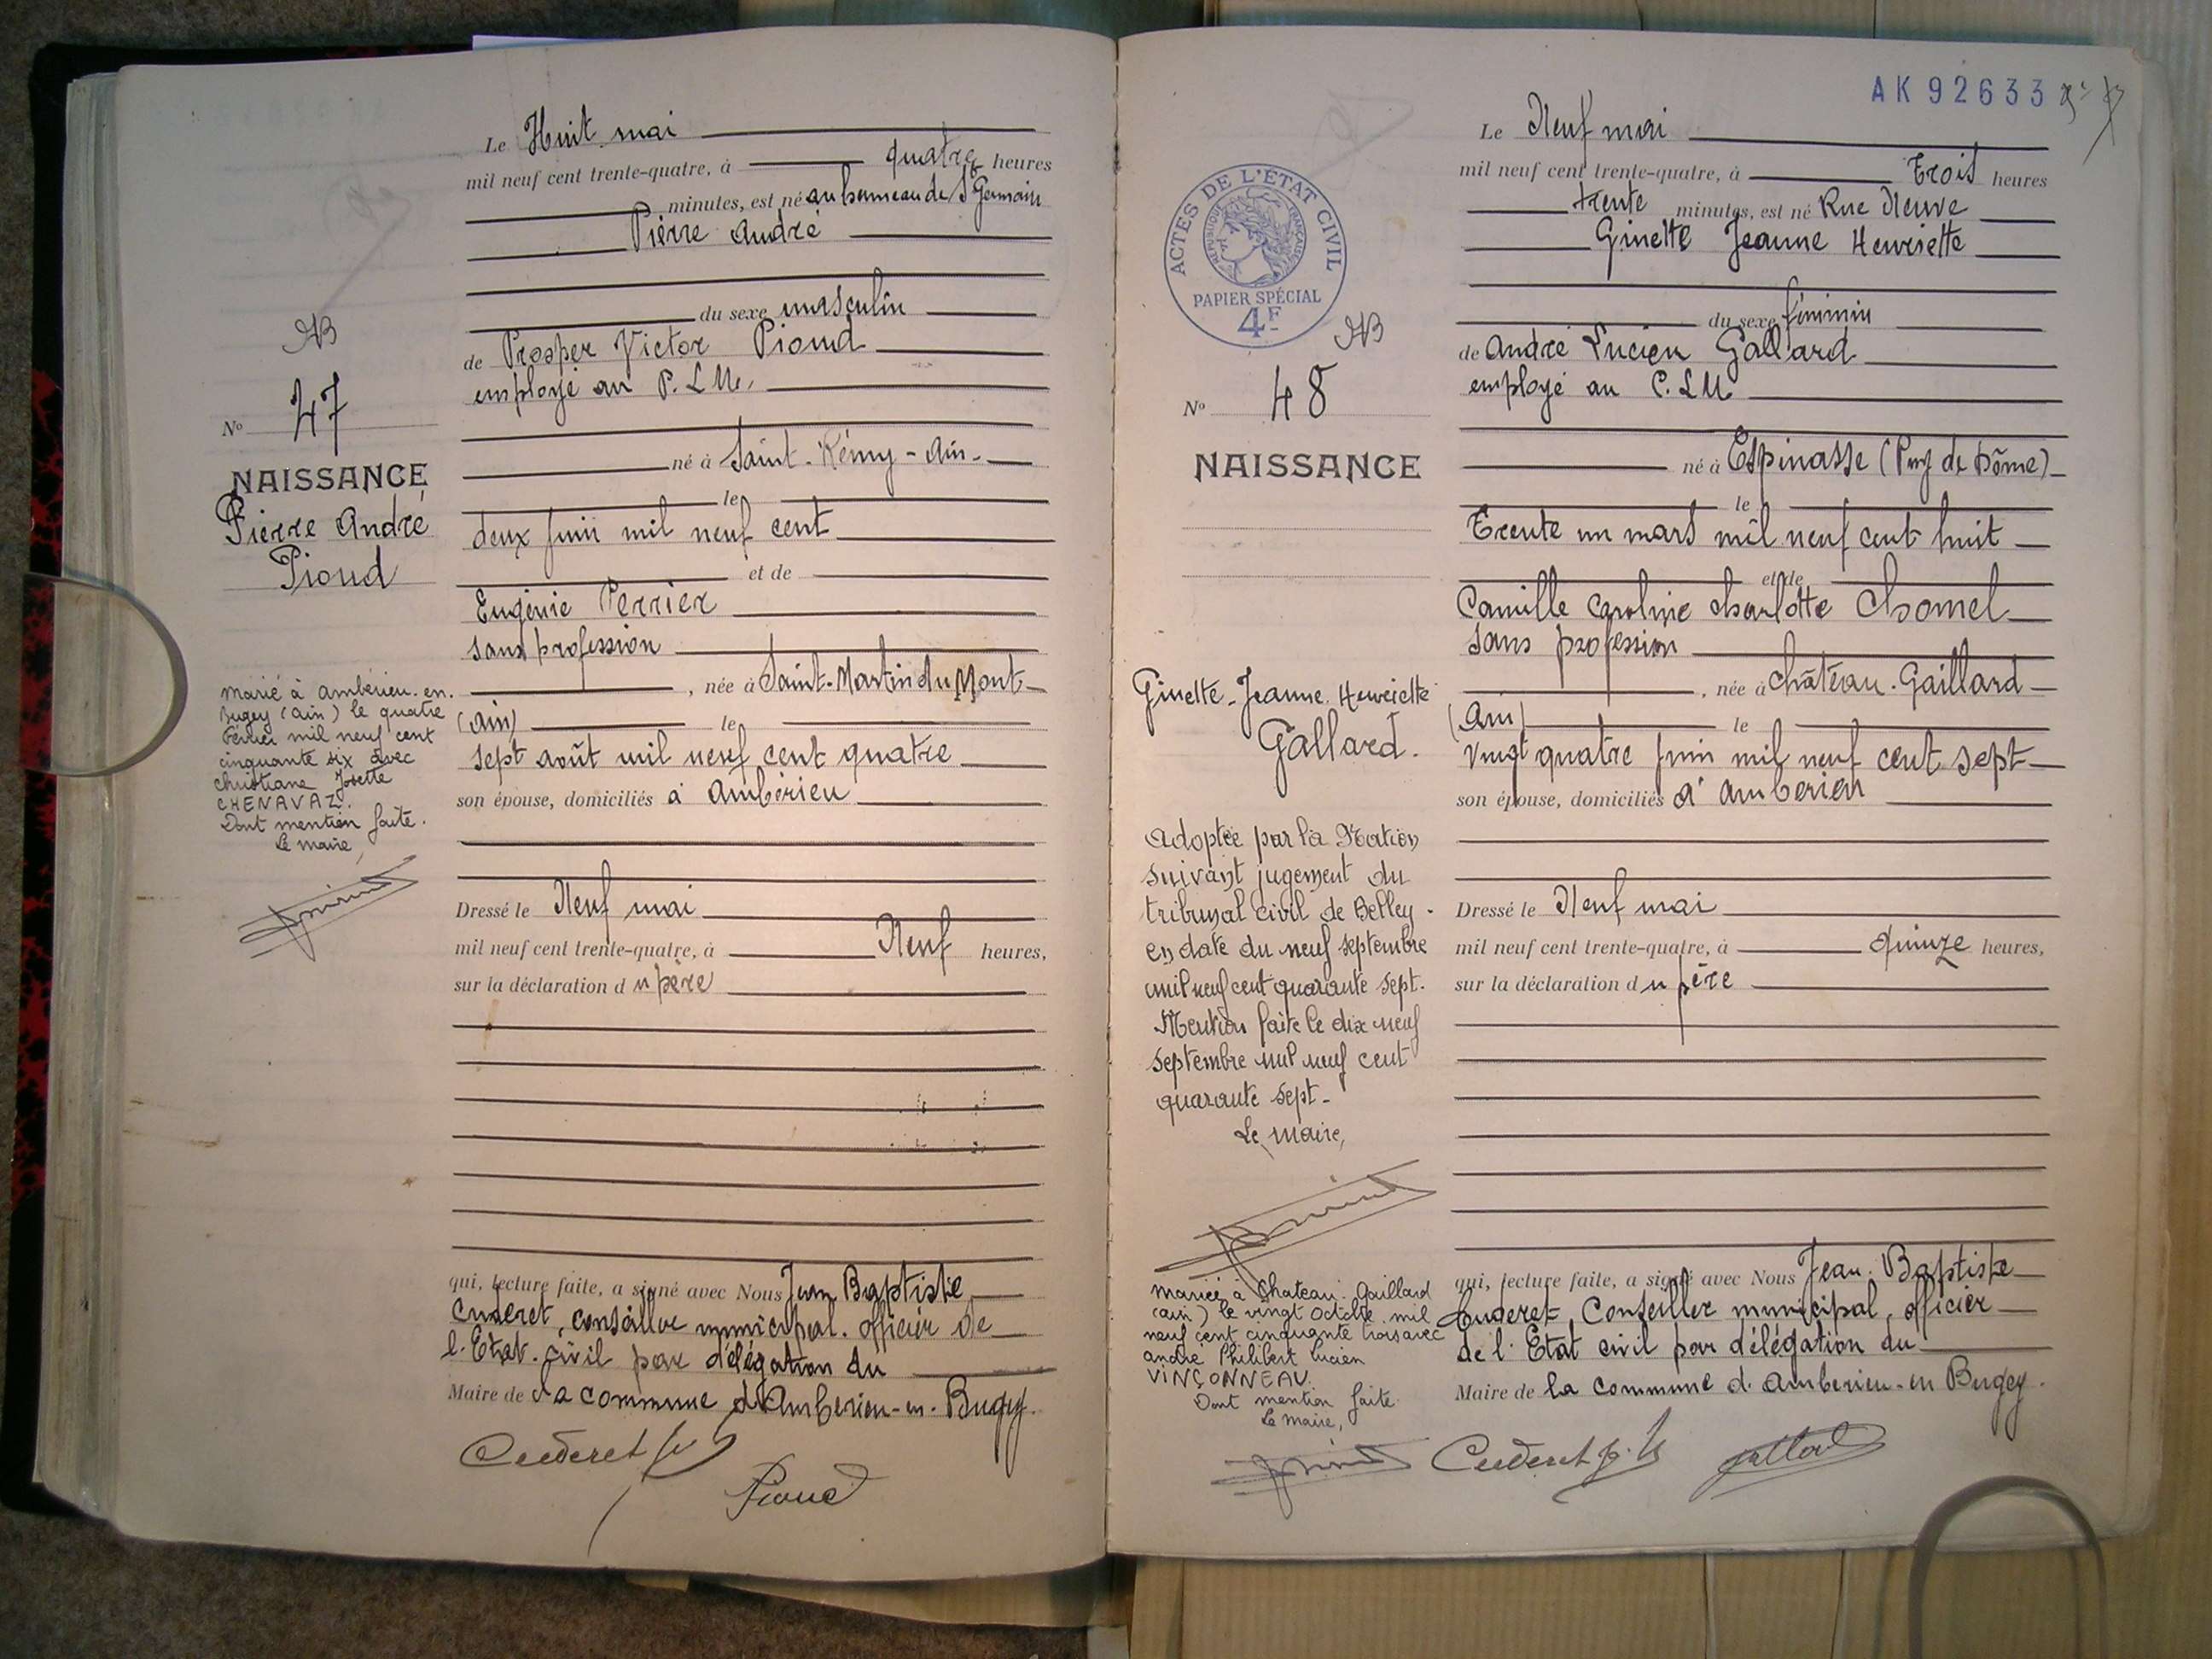 Le Huit mai
mil neuf cent trente-quatre, à quatre heures
minutes, est né au hameau de St Germain
Pierre André
du sexe masculin
de Prosper Victor Pioud
employé au P.L.M.
né à Saint-Rémy-Ain-
le
deux juin mil neuf cent
et de
Eugénie Perrier
sans profession
, née à Saint-Martin du Mont
(Ain) le
sept août mil neuf cent quatre
son épouse, domiciliés à Ambérieu
Dressé le Neuf mai
mil neuf cent trente-quatre, à Neuf heures,
sur la déclaration du père
qui, lecture faite, a signé avec Nous Jean Baptiste
Cuderet, conseiller municipal. officier de
l'Etat-civil par délégation du
Maire de la commune d'Ambérieu-en-Bugey.
Cuderet
Pioud
No 47
NAISSANCE
Pierre André
Pioud
Marié à Ambérieu-en-
Bugey (Ain) le quatre
Février mil neuf cent
cinquante six avec
Christiane Josette
CHENAVAZ.
Dont mention faite.
Le maire,
AK 92633
Le Neuf mai
mil neuf cent trente-quatre, à Trois heures
trente minutes, est né Rue Neuve
Ginette Jeanne Henriette
du sexe féminin
de André Lucien Gallard
employé au P.L.M
né à Espinasse (Puy de Dôme)
le
Trente un mars mil neuf cent huit
et de
Camille Caroline Charlotte Chomel
sans profession
, née à Château-Gaillard
(Ain) le
vingt quatre juin mil neuf cent sept
son épouse, domiciliés à Ambérieu
Dressé le Neuf mai
mil neuf cent trente-quatre, à quinze heures,
sur la déclaration du père
qui, lecture faite, a signé avec Nous Jean-Baptiste
Cuderet, Conseiller municipal, officier
de l'Etat civil par délégation du
Maire de la commune d'Ambérieu-en Bugey.
Cuderet
Gallard
ACTES DE L'ÉTAT CIVIL
RÉPUBLIQUE FRANÇAISE
PAPIER SPÉCIAL
4F
No 48
NAISSANCE
Ginette-Jeanne-Henriette
Gallard.
Adoptée par la Nation
suivant jugement du
tribunal civil de Belley-
en date du neuf septembre
mil neuf cent quarante sept.
Mention faite le dix neuf
septembre mil neuf cent
quarante sept-
Le Maire,
Mariée à Chateau-Gaillard
(Ain) le vingt Octobre mil
neuf cent cinquante trois avec
André Philibert Lucien
VINÇONNEAU.
Dont mention faite
Le Maire,